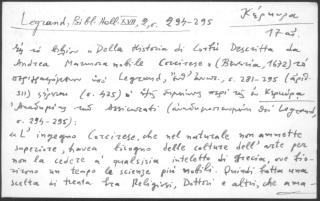 Legrand, Bibl. Hell. XVII, 2, σ. 294-295
Κέρκυρα
17 αἰ.
Εἰς τὸ βιβλίον «Della Historia di Corfù Descritta da
Andrea Marmora nobile Corcirese» (Venezia, 1672) τὸ
περιγραφόμενον ὑπὸ Legrand, σ. 281-295 (ἀριθ.
511) (σ. 425) ἐν Κερκύρᾳ
Ἀκαδημίας τῶν Assicurati Legrand,
σ. 294-295):
«L'ingegno Corcirese, che nel naturale non ammette
superiore, havea bisogno delle colture dell'arte per
non la cedere a qualsisia inteletto di Grecia, ove fio-
rirono un tempo le scienze più nobili. Quindi fatta una
scelta di trenta fra Religiosi, Dottori e altri, che ama-